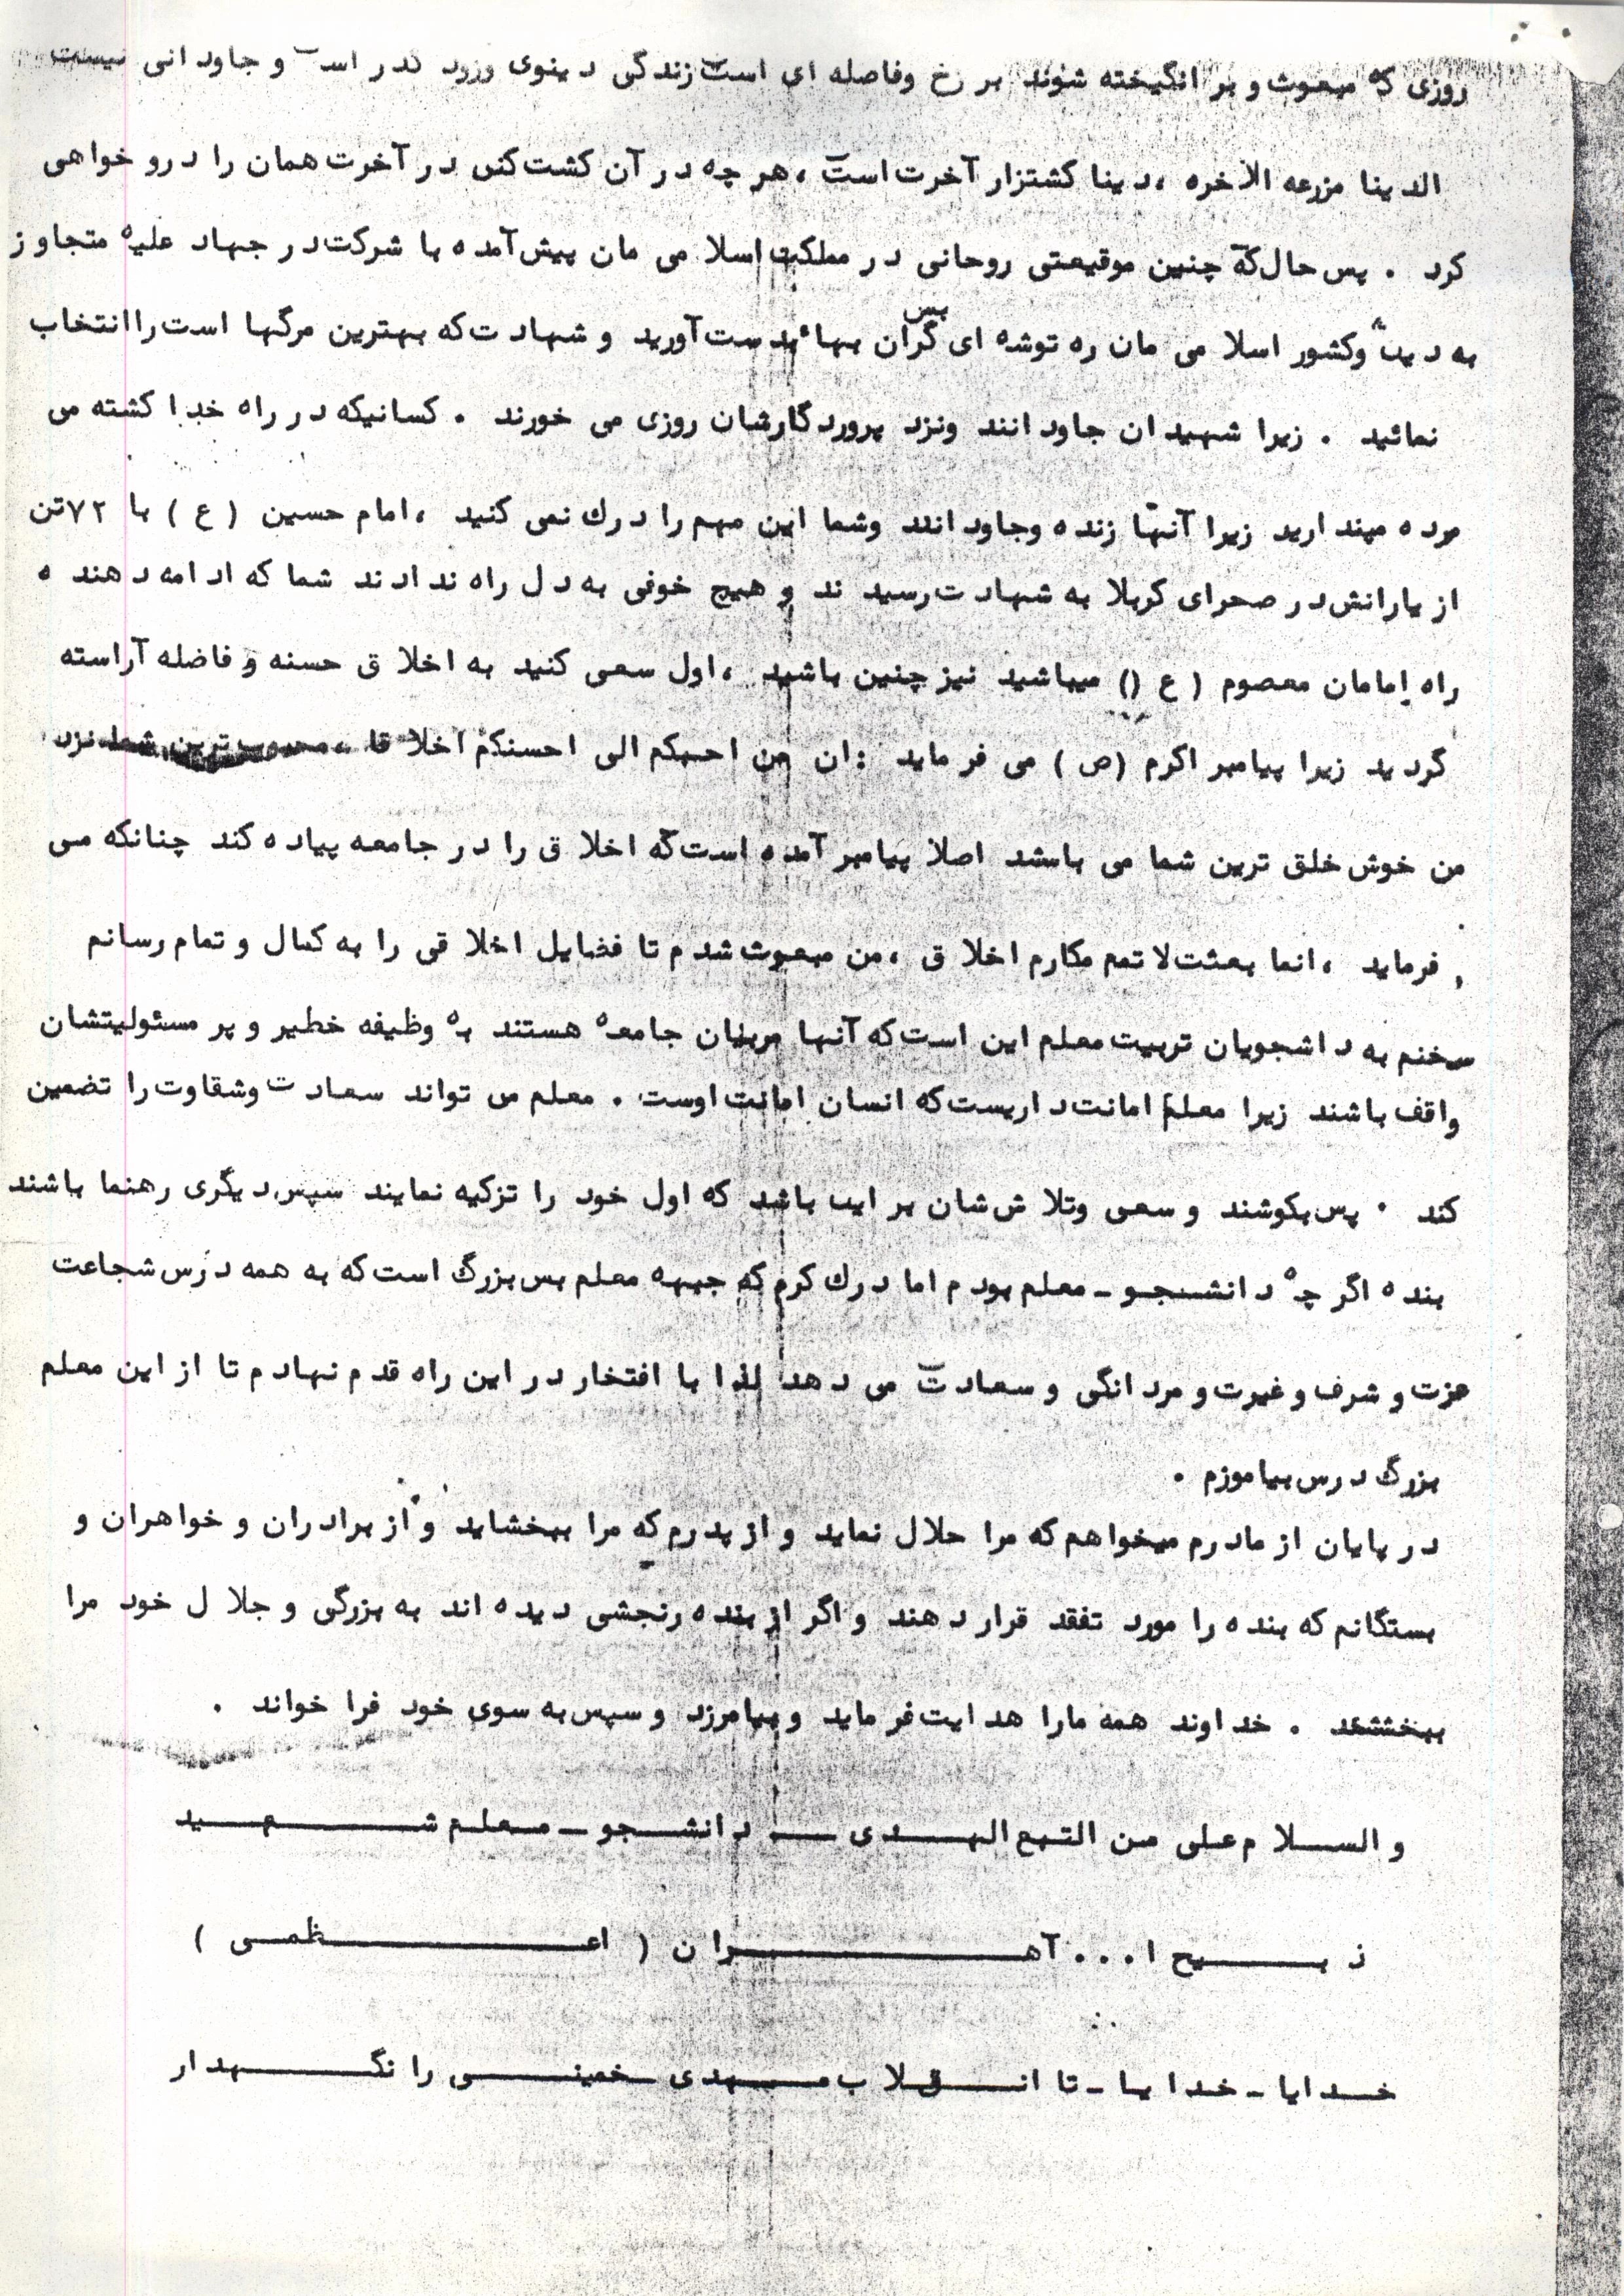 روزی که مبعوث و بر انگیخته شوند بر زخ وفاصله ای است زندگی دینوی وزود گذر است و جاودانی نیست
الدینا مزرعه الاخره ، دینا کشتزار آخرت است ، هر چه در آن کشت کنی در آخرت همان را درو خواهی
کرد . پس حال که چنین موقیعتی روحانی در مملکت اسلامی مان پیش آمده با شرکت در جهاد علیه متجاوز
به دین وکشور اسلامی مان ره توشه ای بس گران بهائ بدست آورید و شهادت که بهترین مرگها است را انتخاب
نمائید . زیرا شهیدان جاودانند ونزد پروردگارشان روزی می خورند . کسانیکه در راه خدا کشته می
مرده مپندارید زیرا آنها زنده وجاودانند وشما این مهم را درك نمی کنید ، امام حسین ( ع ) با ۷۲ تن
از یارانش در صحرای کربلا به شهادت رسیدند و هیچ خوفی به دل راه ندادند شما که ادامه دهنده
راه امامان معصوم ( ع () میباشید نیز چنین باشید ، اول سعی کنید به اخلاق حسنه و فاضله آراسته
گردید زیرا پیامبر اکرم (ص ) می فرماید : ان من احبکم الی احسنکم اخلاقا ، محبوب ترین شما نزد
من خوش خلق ترین شما می باشد اصلا پیامبر آمده است که اخلاق را در جامعه پیاده کند چنانکه می
فرماید ، انما بعثت لاتمم مکارم اخلاق ، من مبعوث شدم تا فضایل اخلاقی را به کمال و تمام رسانم
سخنم به داشجویان تربیت معلم این است که آنها مربیان جامعه هستند به وظیفه خطیر و پر مسئولیتشان
واقف باشند زیرا معلم امانت داریست که انسان امانت اوست . معلم می تواند سعادت وشقاوت را تضمین
کند . پس بکوشند و سعی وتلاش شان بر این باشد که اول خود را تزکیه نمایند سپس دیگری رهنما باشند
بنده اگر چه دانشجو - معلم بودم اما درك کرم که جبهه معلم بس بزرگ است که به همه درس شجاعت
عزت و شرف و غیرت و مردانگی و سعادت می دهد لذا با افتخار در این راه قدم نهادم تا از این معلم
بزرگ درس بیاموزم .
در پایان از مادرم میخواهم که مرا حلال نماید و از پدرم که مرا ببخشاید و از برادران و خواهران و
بستگانم که بنده را مورد تفقد قرار دهند و اگر از بنده رنجشی دیده اند به بزرگی و جلال خود مرا
ببخشند . خداوند همه مارا هدایت فرماید و بیامرزد و سپس به سوی خود فرا خواند .
و السلام علی من التبع الهدی — دانشجو - معلم شهید
ذبیح ا... آهنران ( اعظمی )
خدایا - خدایا - تا انقلاب مهدی خمینی را نگهدار